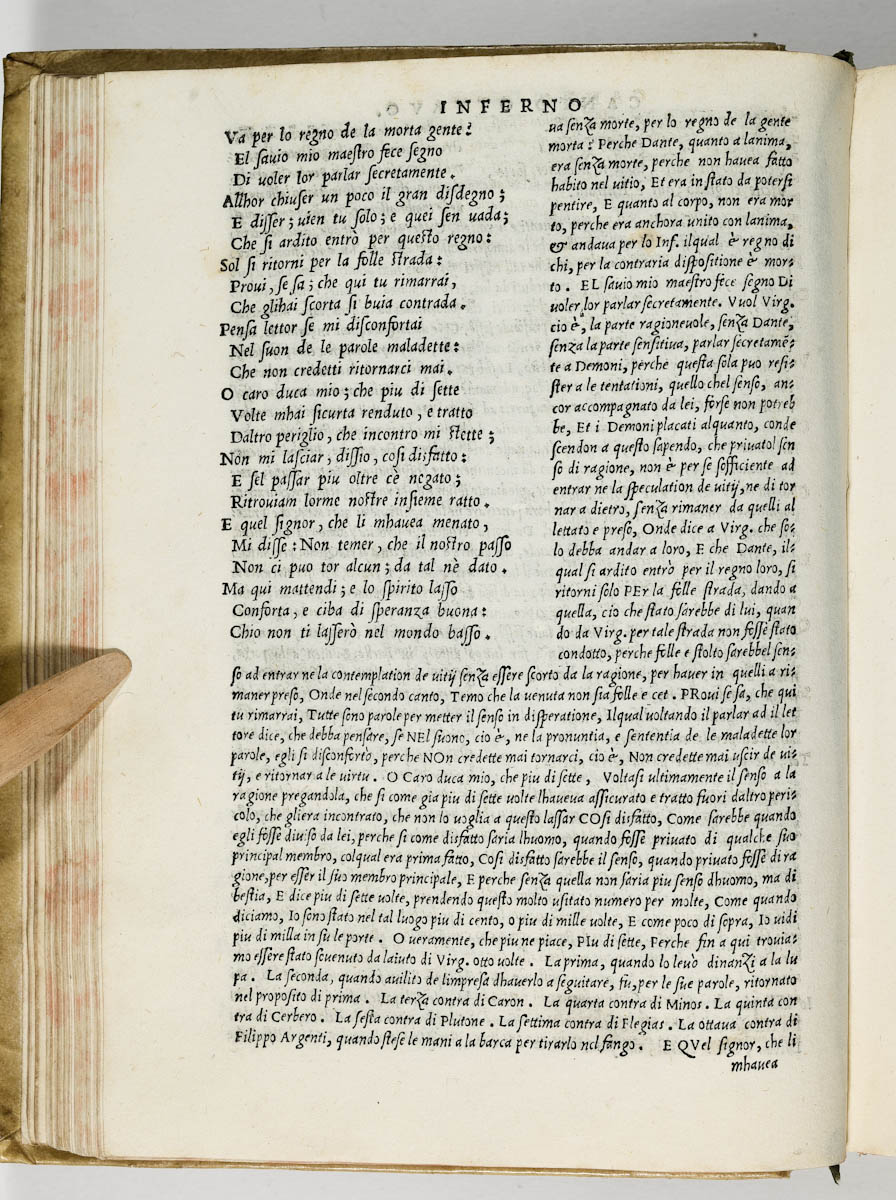 INFERNO
Va per lo regno de la morta gente?
El savio mio maestro fece segno
Di voler lor parlar secretamente.
Allhor chiuser un poco il gran disdegno;
E disser; vien tu solo; e quei sen vada;
Che si ardito entrò per questo regno:
Sol si ritorni per la folle strada:
Provi, se sa; che qui tu rimarrai,
Che glihai scorta si buia contrada.
Pensa lettor se mi disconfortai
Nel suon de le parole maladette:
Che non credetti ritornarci mai.
O caro duca mio; che piu di sette
Volte mhai sicurta renduto, e tratto
Daltro periglio, che incontro mi stette;
Non mi lasciar, dissio, cosi disfatto:
E sel passar piu oltre cè negato;
Ritroviam lorme nostre insieme ratto.
E quel signor, che li mhavea menato,
Mi disse: Non temer, che il nostro passo
Non ci puo tor alcun; da tal nè dato.
Ma qui mattendi; e lo spirito lasso
Conforta, e ciba di speranza buona:
Chio non ti lasserò nel mondo basso.
va senza morte, per lo regno de la gente
morta? Perche Dante, quanto a lanima,
era senza morte, perche non havea fatto
habito nel vitio, Et era in stato da potersi
pentire, E quanto al corpo, non era mor
to, perche era anchora unito con lanima,
& andava per lo Inf. ilqual è regno di
chi, per la contraria dispositione è mor-
to. EL savio mio maestro fece segno Di
voler lor parlar secretamente. Vuol Virg.
cio è, la parte ragionevole, senza Dante,
senza la parte sensitiva, parlar secretamē-
te a Demoni, perche questa sola puo resi-
ster a le tentationi, quello chel senso, an-
cor accompagnato da lei, forse non potreb
be, Et i Demoni placati alquanto, conde
scendon a questo sapendo, che privatol sen
so di ragione, non è per se sofficiente ad
entrar ne la speculation de vitij, ne di tor
nar a dietro, senza rimaner da quelli al
lettato e preso, Onde dice a Virg. che so-
lo debba andar a loro, E che Dante, il-
qual si ardito entrò per il regno loro, si
ritorni solo PEr la folle strada, dando a
quella, cio che stato sarebbe di lui, quan
do da Virg. per tale strada non fosse stato
condotto, perche folle e stolto sarebbel sen-
so ad entrar ne la contemplation de vitij senza essere scorto da la ragione, per haver in quelli a ri-
maner preso, Onde nel secondo canto, Temo che la venuta non sia folle e cet. PRovi se sa, che qui
tu rimarrai, Tutte sono parole per metter il senso in disperatione, Ilqual voltando il parlar ad il let
tore dice, che debba pensare, se NEl suono, cio è, ne la pronuntia, e sententia de le maladette lor
parole, egli si disconfortò, perche NOn credette mai tornarci, cio è, Non credette mai uscir de vi-
tij, e ritornar a le virtu. O Caro duca mio, che piu di sette, Voltasi ultimamente il senso a la
ragione pregandola, che si come gia piu di sette volte lhaveva assicurato e tratto fuori daltro peri-
colo, che gliera incontrato, che non lo voglia a questo lassar COsi disfatto, Come sarebbe quando
egli fosse diviso da lei, perche si come disfatto saria lhuomo, quando fosse privato di qualche suo
principal membro, colqual era prima fatto, Cosi disfatto sarebbe il senso, quando privato fosse di ra
gione, per esser il suo membro principale, E perche senza quella non saria piu senso dhuomo, ma di
bestia, E dice piu di sette volte, prendendo questo molto usitato numero per molte, Come quando
diciamo, Io sono stato nel tal luogo piu di cento, o piu di mille volte, E come poco di sopra, Io vidi
piu di milla in su le porte. O veramente, che piu ne piace, PIu di sette, Perche fin a qui trovia-
mo essere stato sovenuto da laiuto di Virg. otto volte. La prima, quando lo levò dinanzi a la lu
pa. La seconda, quando avilito de limpresa dhaverlo a seguitare, fu, per le sue parole, ritornato
nel proposito di prima. La terza contra di Caron. La quarta contra di Minos. La quinta con
tra di Cerbero. La sesta contra di Plutone. La settima contra di Flegias. La ottava contra di
Filippo Argenti, quando stese le mani a la barca per tirarlo nel fango. E QUel signor, che li
mhavea